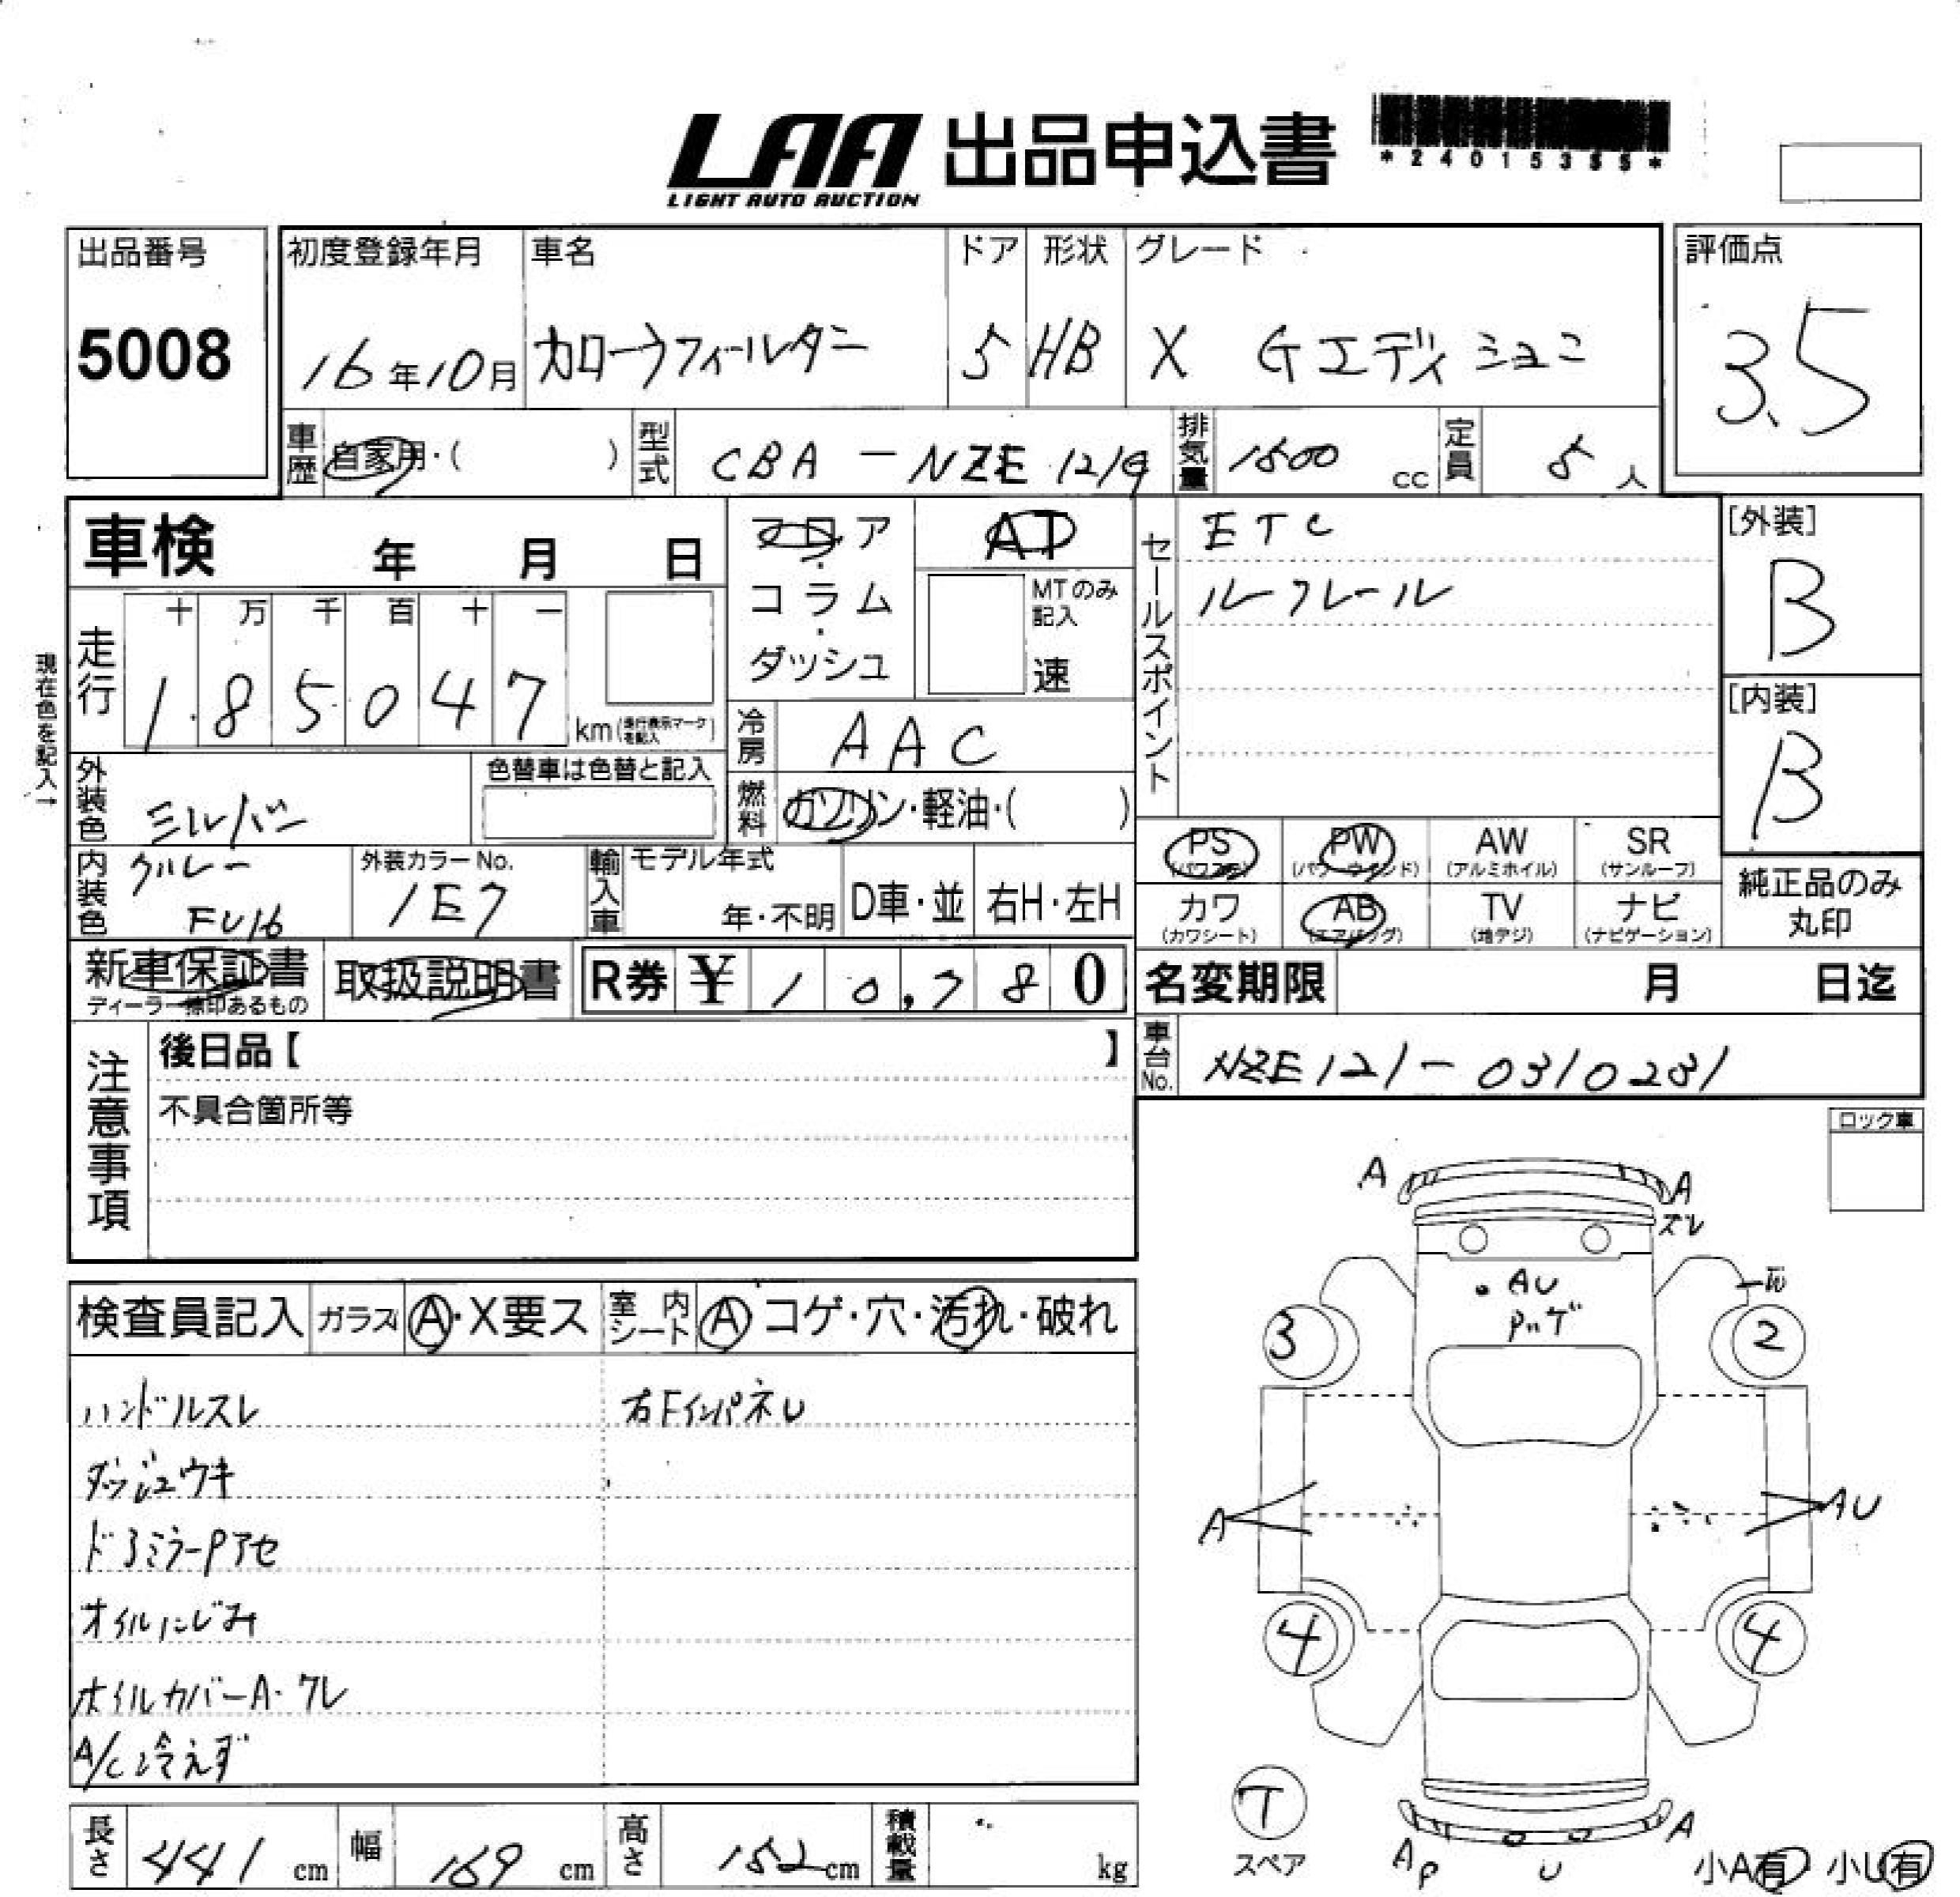 LAA 出品申込書
LIGHT AUTO AUCTION
*24015355*
出品番号
5008
初度登録年月
16年10月
車名
カローラフィールダー
ドア
5
形状
HB
グレード
X Gエディション
評価点
3.5
車歴
自家用・( )
型式
CBA-NZE121G
排気量
1500 cc
定員
5 人
車検 年 月 日
現在色を記入→
走行
十 万 千 百 十 一
1 8 5 0 4 7
km (走行表示マークを記入)
フロア・コラム・ダッシュ
AT
MTのみ記入
速
冷房
AAC
燃料
ガソリン・軽油・( )
外装色
シルバー
色替車は色替と記入
内装色
グレー
FU16
外装カラーNo.
1E7
輸入車
モデル年式
年・不明
D車・並
右H・左H
セールスポイント
ETC
ルーフレール
[外装]
B
[内装]
B
PS (パワステ)
PW (パワーウインド)
AW (アルミホイル)
SR (サンルーフ)
カワ (カワシート)
AB (エアバッグ)
TV (地デジ)
ナビ (ナビゲーション)
純正品のみ丸印
新車保証書
ディーラー捺印あるもの
取扱説明書
R券 ¥ 1 0,7 8 0
名変期限 月 日迄
車台No.
NZE121-0310231
注意事項
後日品【 】
不具合箇所等
ロック車
検査員記入
ガラス
A・X要ス
室内シート
A コゲ・穴・汚れ・破れ
ハンドルスレ
右FインパネU
ダッシュウキ
ドアミラーPアセ
オイルにじみ
ホイルカバーA・ワレ
A/C冷えず
A
A
ズレ
AU
Pハゲ
3
2
A
AU
4
4
T
スペア
AP
U
A
小A有 小U有
長さ
441 cm
幅
169 cm
高さ
152 cm
積載量
kg